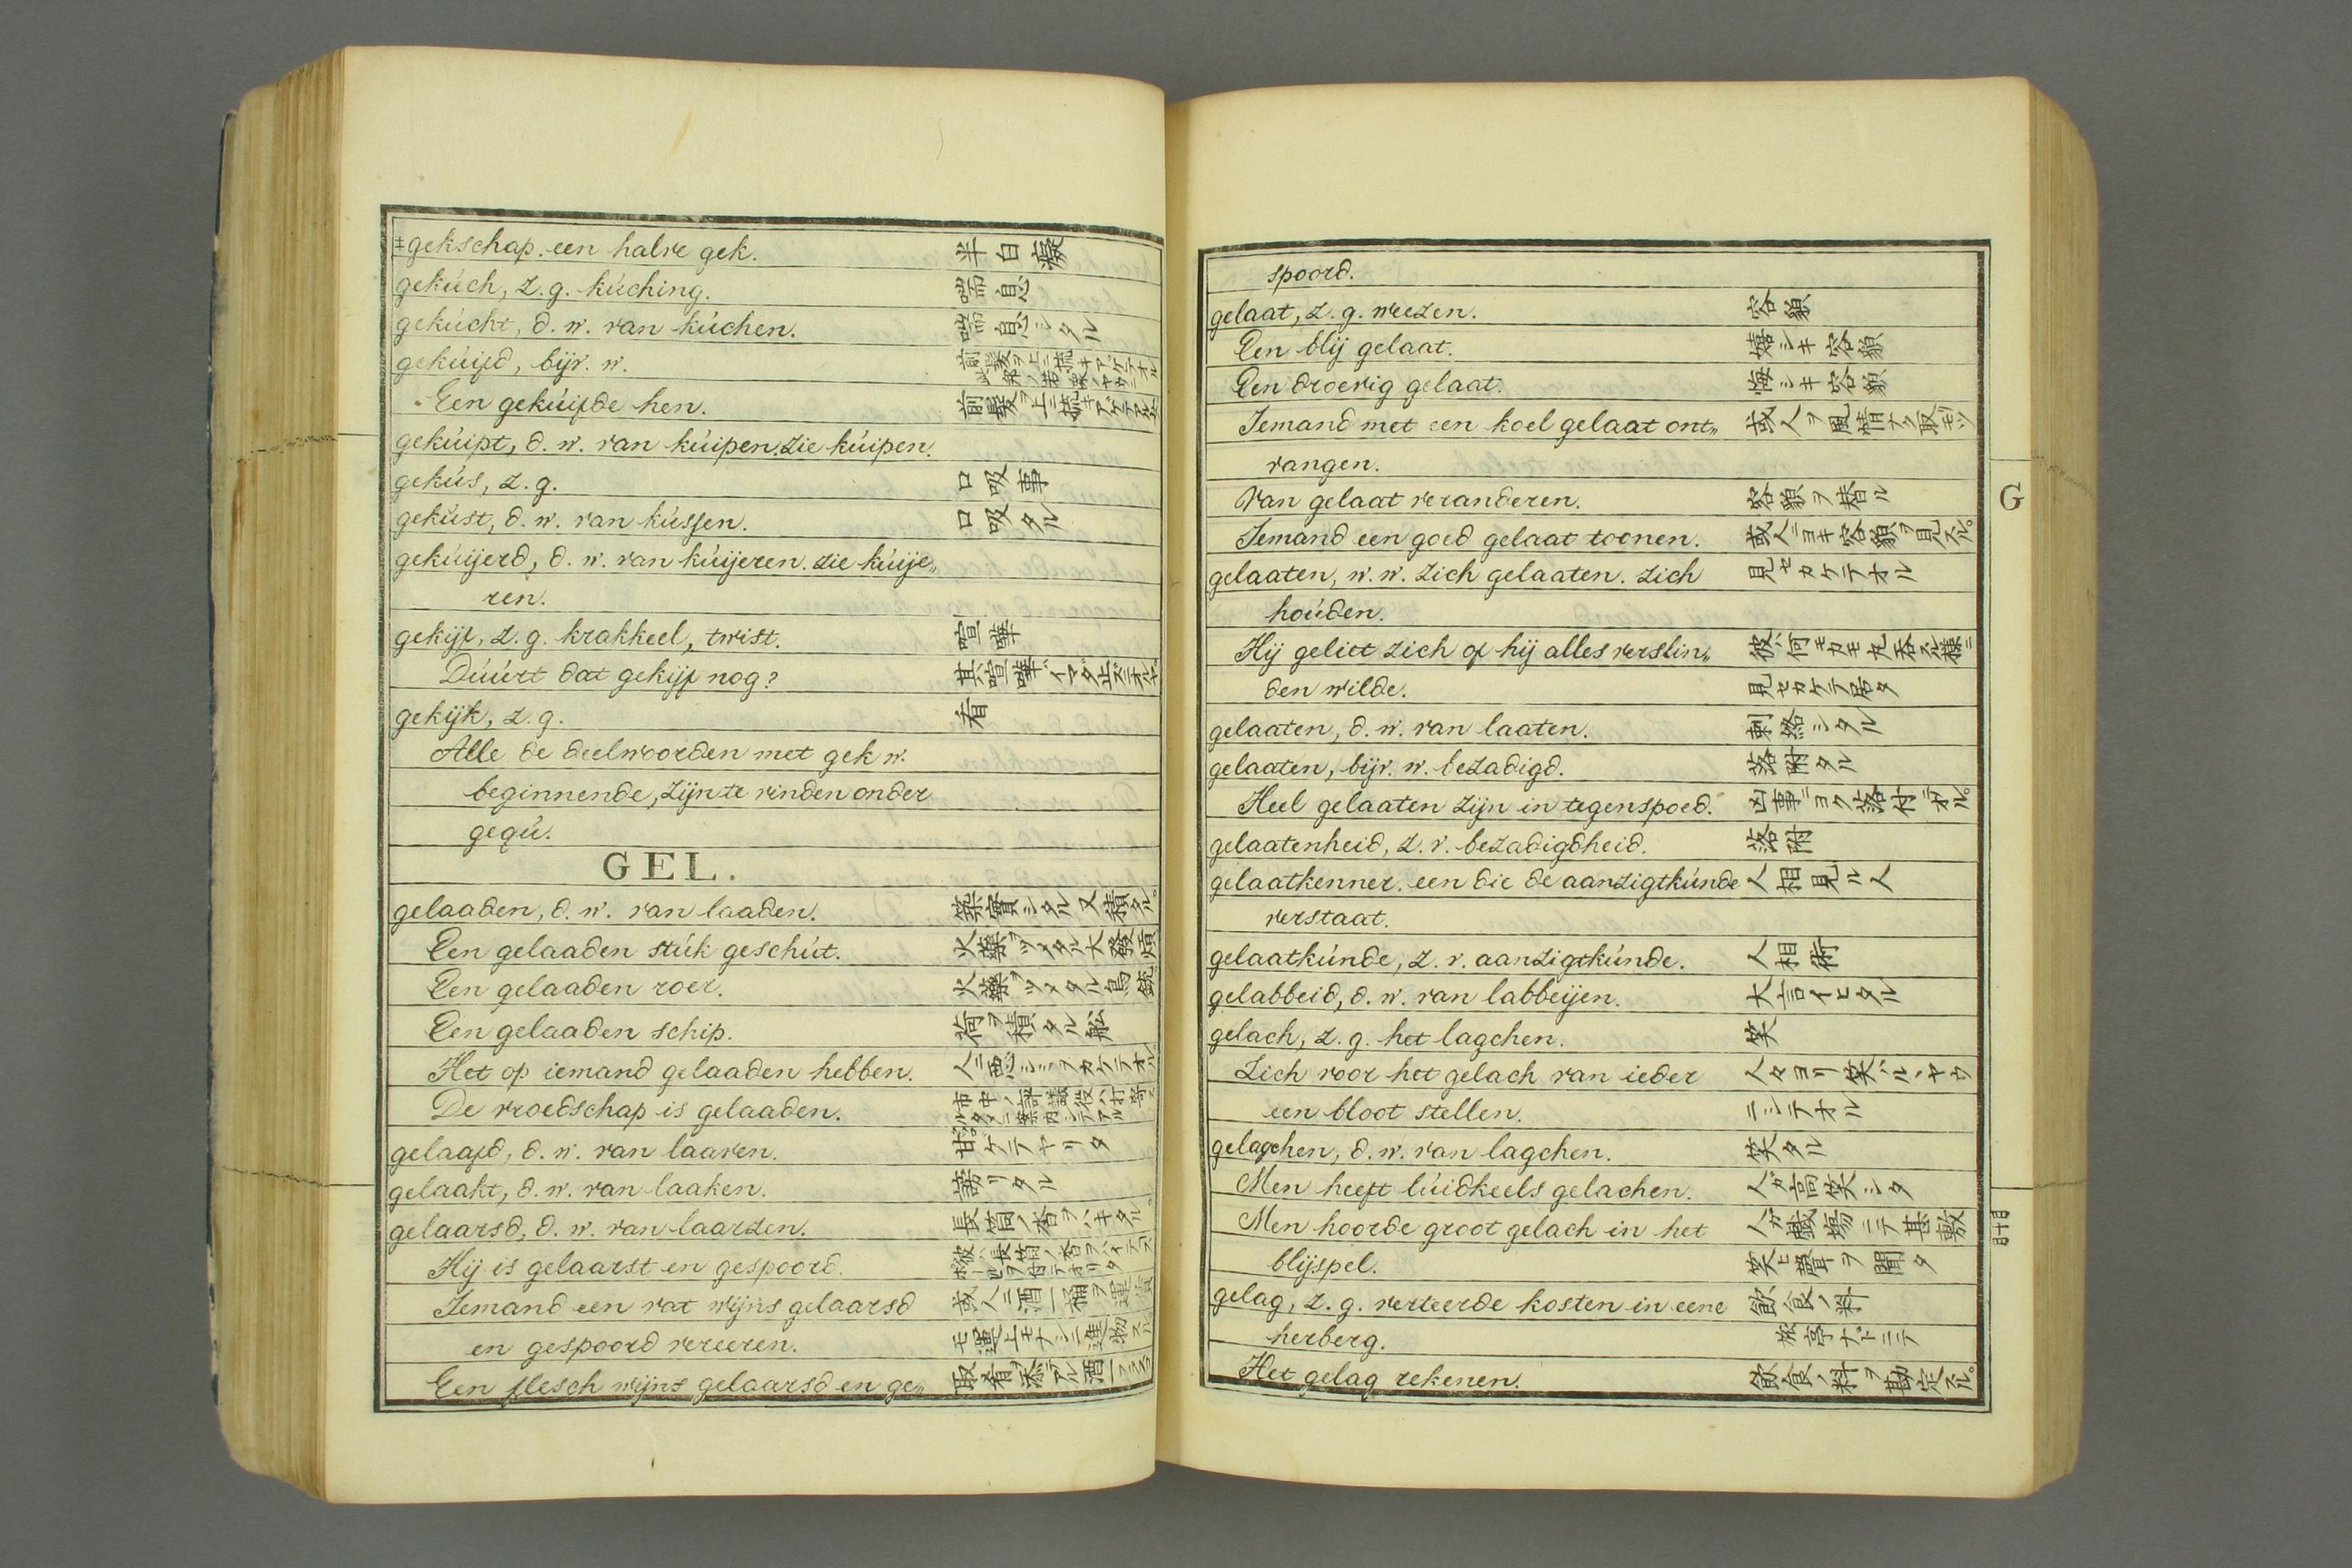 gekschap. een halve gek. 半白癡
gekúch, z. g. kúching. 喘息
gekúcht, d. w. van kúchen. 喘息シタル
gekúifd, bijv. w. 前髪ヲ上ニ
Een gekúifde hen. 前髪ヲ上ニ
gekúipt, d. w. van kúipen. zie kúipen.
gekús, z. g. 口吸事
gekúst, d. w. van kússen. 口吸タル
gekúijerd, d. w. van kúijeren. zie kúije„
ren.
gekijf, z. g. krakkeel, twist. 喧嘩
Dúúrt dat gekijf nog? 其喧嘩ハイマダ止ズニオルヤ
gekijk, z. g. 看
Alle de deelwoorden met gek w.
beginnende, zijn te vinden onder
gequ.
GEL.
gelaaden, d. w. van laaden. 築實シタル又積タル。
Een gelaaden stúk geschút. 火藥ヲツメタル大發熕
Een gelaaden roer. 火藥ヲツメタル鳥銃
Een gelaaden schip. 荷ヲ積タル舩
Het op iemand gelaaden hebben.
De vroedschap is gelaaden.
gelaafd, d. w. van laaven.
gelaakt, d. w. van laaken. 謗リタル
gelaarsd, d. w. van laarzen. 長筒ノ沓ヲハキタル。
Hij is gelaarst en gespoord. 彼ハ長筒ノ沓ヲ
Iemand een vat wijns gelaarsd 或人ニ酒一桶ヲ運賃
en gespoord vereeren. モ運上モナシニ進物スル。
Een flesch wijns gelaarsd en ge„ 取肴ヲ添テアル酒一フラスコ
spoord.
gelaat, z. g. weezen. 容貌
Een blij gelaat. 嬉シキ容貌
Een droevig gelaat. 悔シキ容貌
Iemand met een koel gelaat ont„ 或人ヲ風情ナク取モツ
vangen.
Van gelaat veranderen. 容貌ヲ替ル
Iemand een goed gelaat toonen. 或人ニヨキ容貌ヲ見スル。
gelaaten, w. w. zich gelaaten. zich 見セカケテオル
hoúden.
Hij geliet zich of hij alles verslin„ 彼ハ何モカモ丸呑スル様ニ
den wilde. 見セカケテ居タ
gelaaten, d. w. van laaten. 刺絡シタル
gelaaten, bijv. w. bezadigd. 落附タル
Heel gelaaten zijn in tegenspoed. 凶事ニヨク落付テオル。
gelaatenheid, z. v. bezadigdheid. 落附
gelaatkenner. een die de aanzigtkúnde 人相見ル人
verstaat.
gelaatkúnde, z. v. aanzigtkúnde. 人相術
gelabbeid, d. w. van labbeijen. 大言イヒタル
gelach, z. g. het lagchen. 笑
Zich voor het gelach van ieder 人々ヨリ笑ハルヽヤウ
een bloot stellen. ニシテオル
gelagchen, d. w. van lagchen. 笑タル
Men heeft lúidkeels gelachen. 人ガ高笑シタ
Men hoorde groot gelach in het 人ガ戲塲ニテ甚敷
blijspel. 笑ヒ聲ヲ聞タ
gelag, z. g. verteerde kosten in eene 飲食ノ料
herberg. 旅亭ナドニテ
Het gelag rekenen. 飲食ノ料ヲ勘定スル。
G